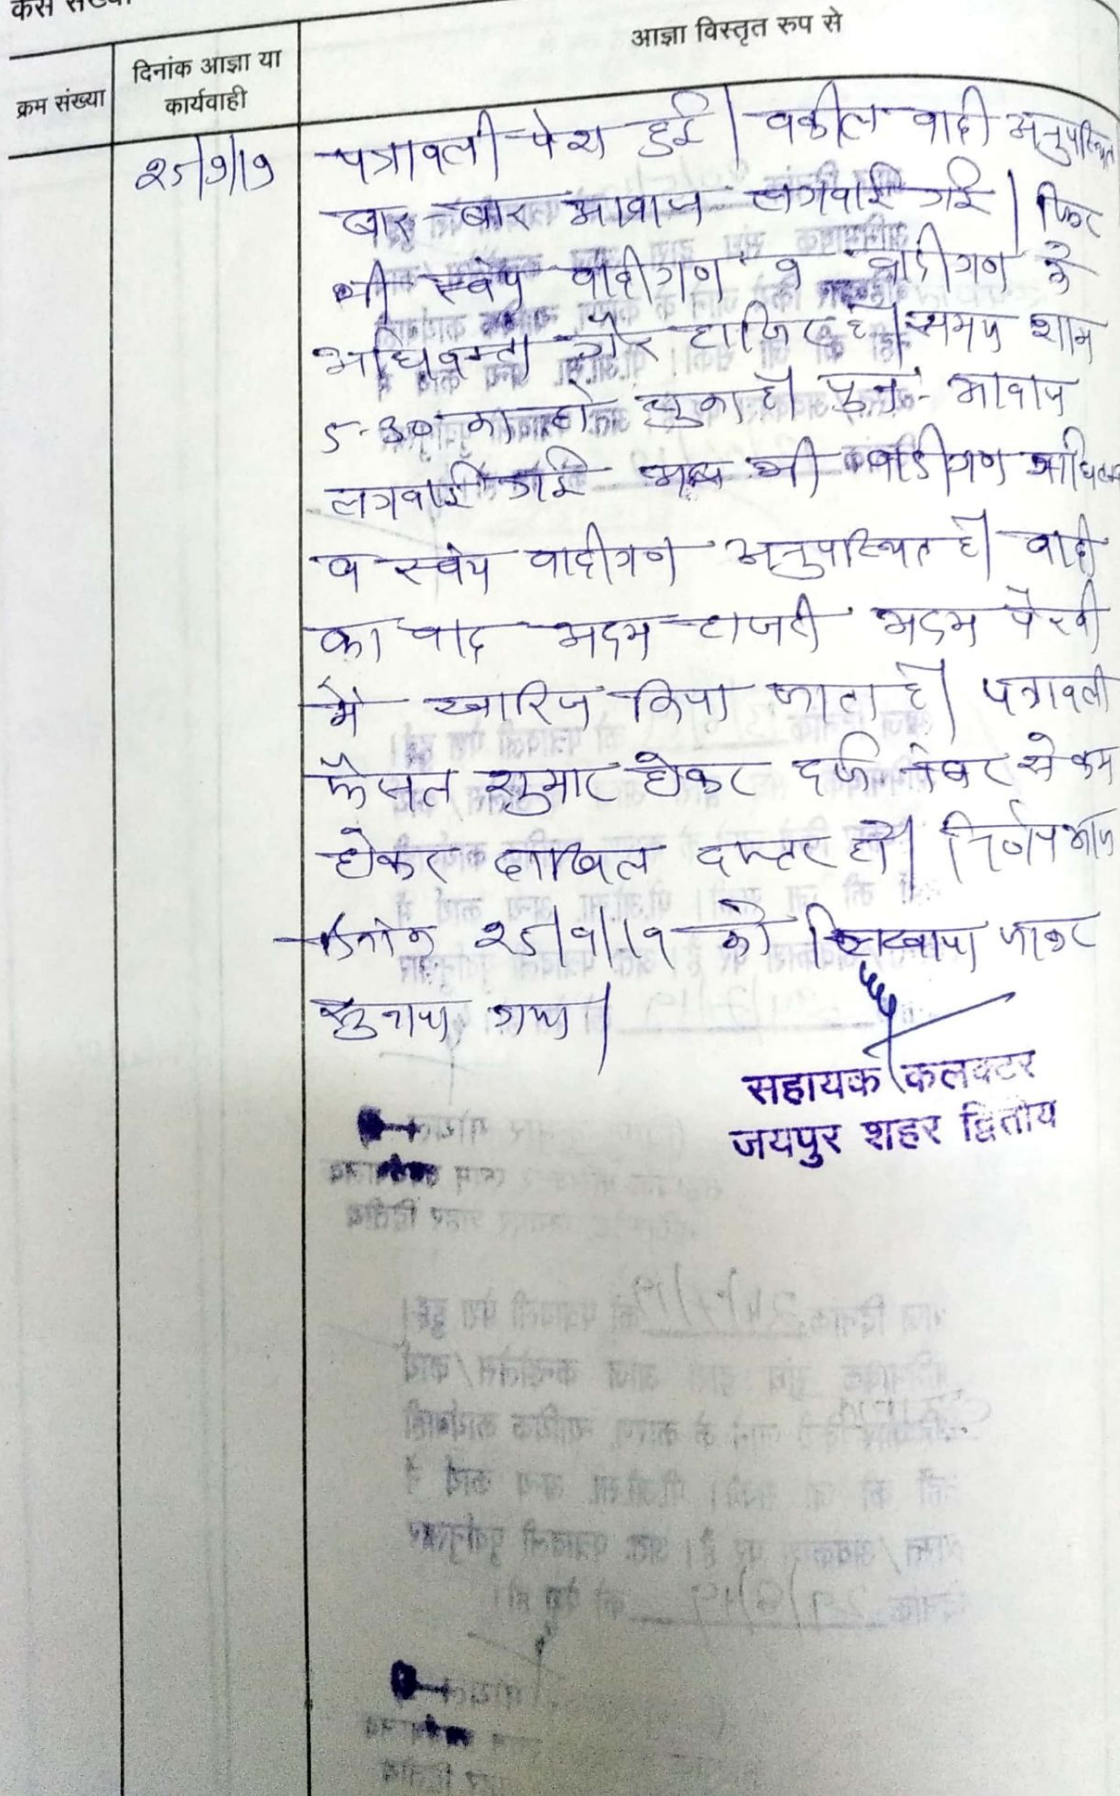 केस संख्या
क्रम संख्या
दिनांक आज्ञा या
कार्यवाही
आज्ञा विस्तृत रुप से
25/9/19
पत्रावली पेश हुई। वकील वादी अनुपस्थित
बार बार आवाज लगवाई गई। फिर
भी स्वंय वादीगण व वादीगण के
अधिवक्ता गैर हाजिर है। समय शाम
5-30 का हो चुका है। पुन: आवाज
लगवाई गई अब भी वादीगण अधिवक्ता
व स्वंय वादीगण अनुपस्थित है। वादी
का वाद अदम हाजरी अदम पैरवी
मे खारिज किया जाता है। पत्रावली
फैसल शुमार होकर दर्ज नंबर से कम
होकर दाखिल दफ्तर हो। निर्णय आज
दिनांक 25/9/19 को लिखवाया जाकर
सुनाया गया।
सहायक कलक्टर
जयपुर शहर द्वितीय